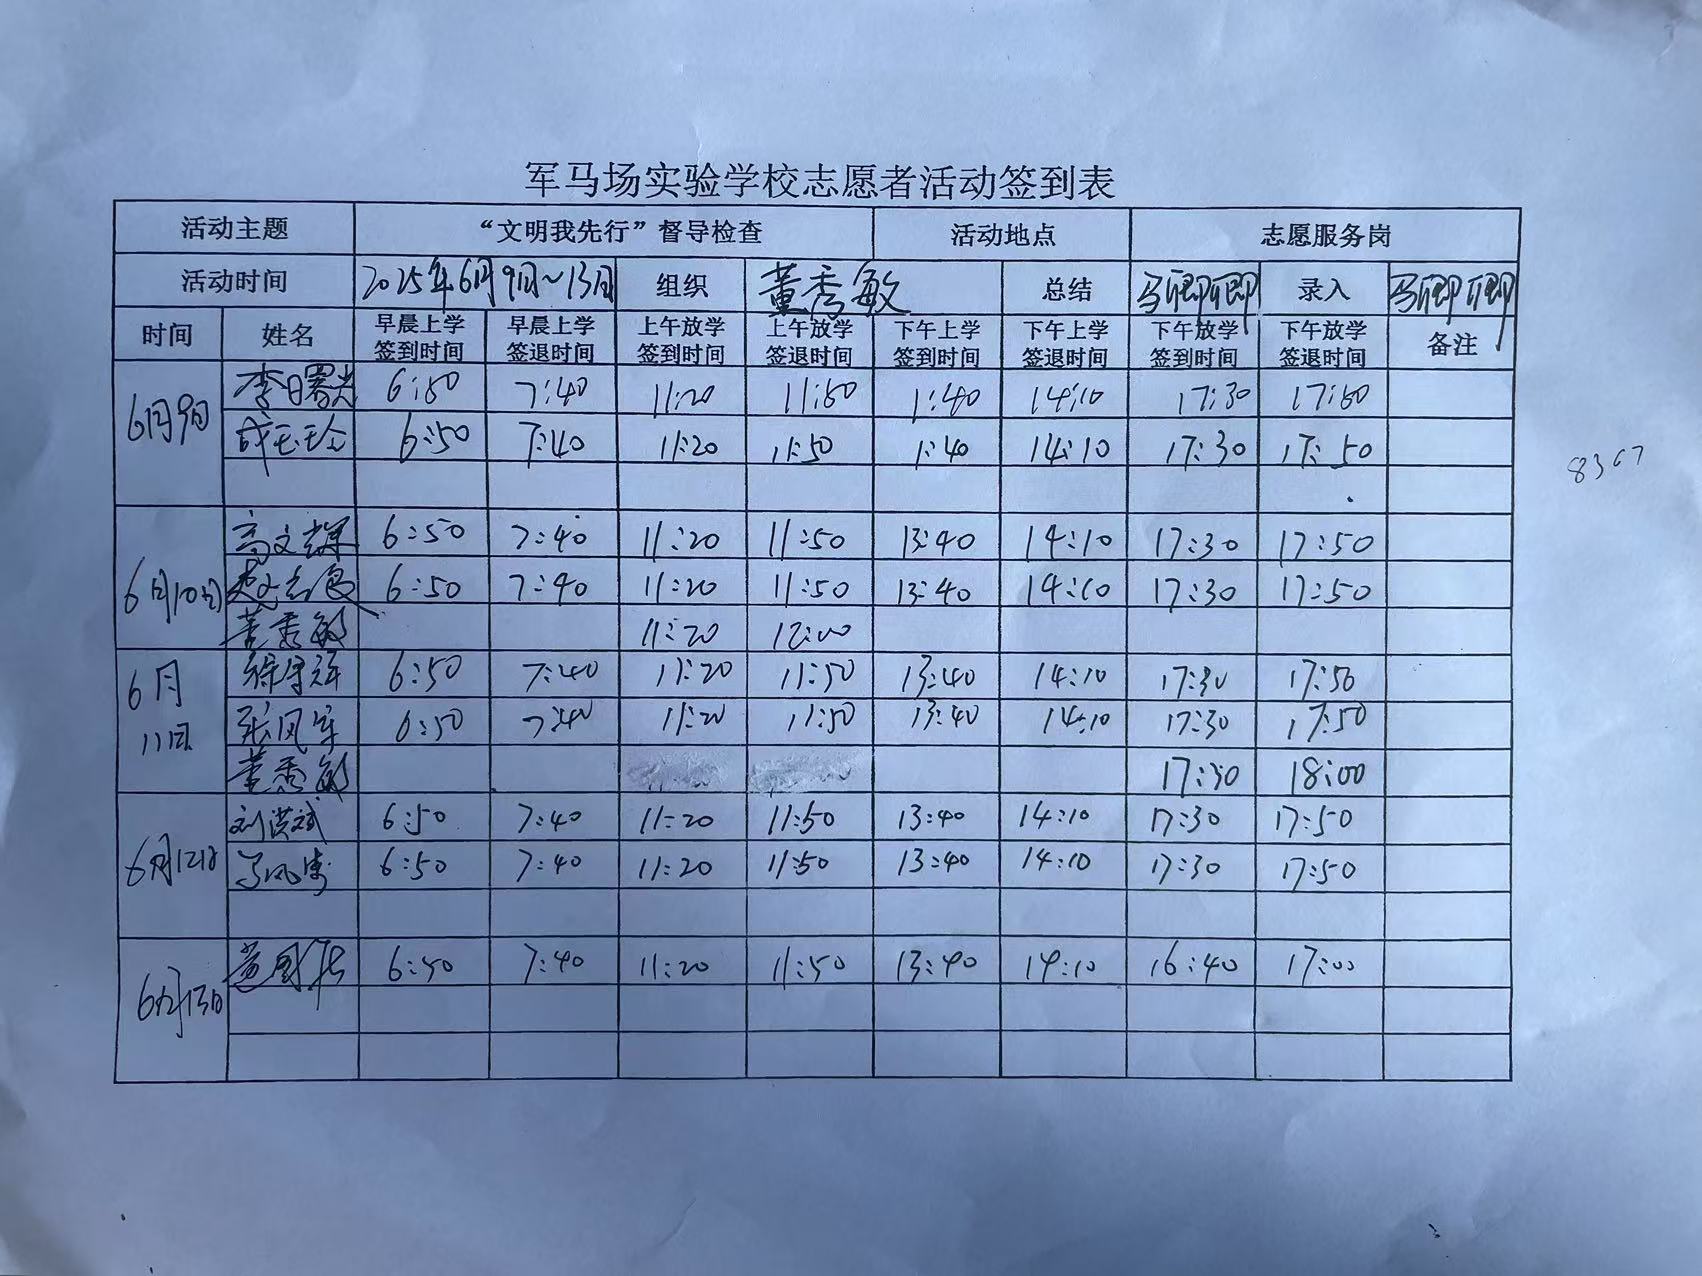 军马场实验学校志愿者活动签到表
活动主题 “文明我先行”督导检查 活动地点 志愿服务岗
活动时间 2025年6月9日~13日 组织 董秀敏 总结 马卿卿 录入 马卿卿
时间 姓名 早晨上学签到时间 早晨上学签退时间 上午放学签到时间 上午放学签退时间 下午上学签到时间 下午上学签退时间 下午放学签到时间 下午放学签退时间 备注
6月9日 李曙光 6:50 7:40 11:20 11:50 1:40 14:10 17:30 17:50
6:50 7:40 11:20 11:50 1:40 14:10 17:30 17:50
8367
6月10日 高文辉 6:50 7:40 11:20 11:50 13:40 14:10 17:30 17:50
6:50 7:40 11:20 11:50 13:40 14:10 17:30 17:50
董秀敏 11:20 12:00
6月11日 6:50 7:40 11:20 11:50 13:40 14:10 17:30 17:50
张风军 6:50 7:40 11:20 11:50 13:40 14:10 17:30 17:50
董秀敏 17:30 18:00
6月12日 刘洪斌 6:50 7:40 11:20 11:50 13:40 14:10 17:30 17:50
6:50 7:40 11:20 11:50 13:40 14:10 17:30 17:50
6月13日 6:50 7:40 11:20 11:50 13:40 14:10 16:40 17:00